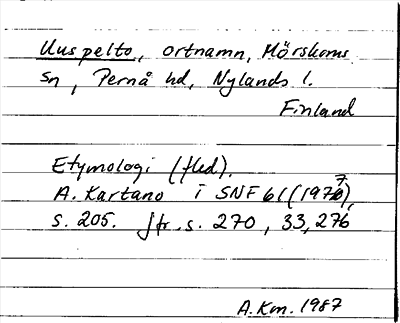 Uuspelto, ortnamn, Mörskoms
sn, Pernå hd, Nylands l.
Finland
Etymologi (fled).
A. Kartano i SNF 61 (1977),
s. 205. Jfr. s. 270, 33, 276
A.Km. 1987